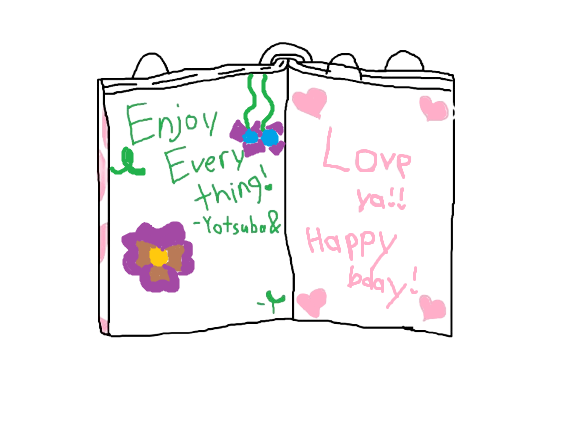 Enjoy
Every
thing!
-Yotsuba&
-Y
Love
ya!!
Happy
bday!